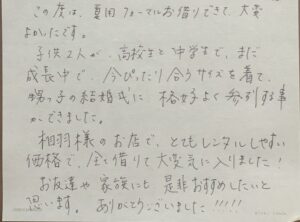 この度は、夏用フォーマルお借りできて、大変
よかったです。
子供2人が、高校生と中学生で、まだ
成長中で、今ぴったり合うサイズを着て、
甥っ子の結婚式に 格好よく参列する事
ができました。
相羽様のお店で、とてもレンタルしやすい
価格で、全て借りて大変気に入りました!
お友達や家族にも、是非おすすめしたいと
思います。 ありがとうございました!!!!!